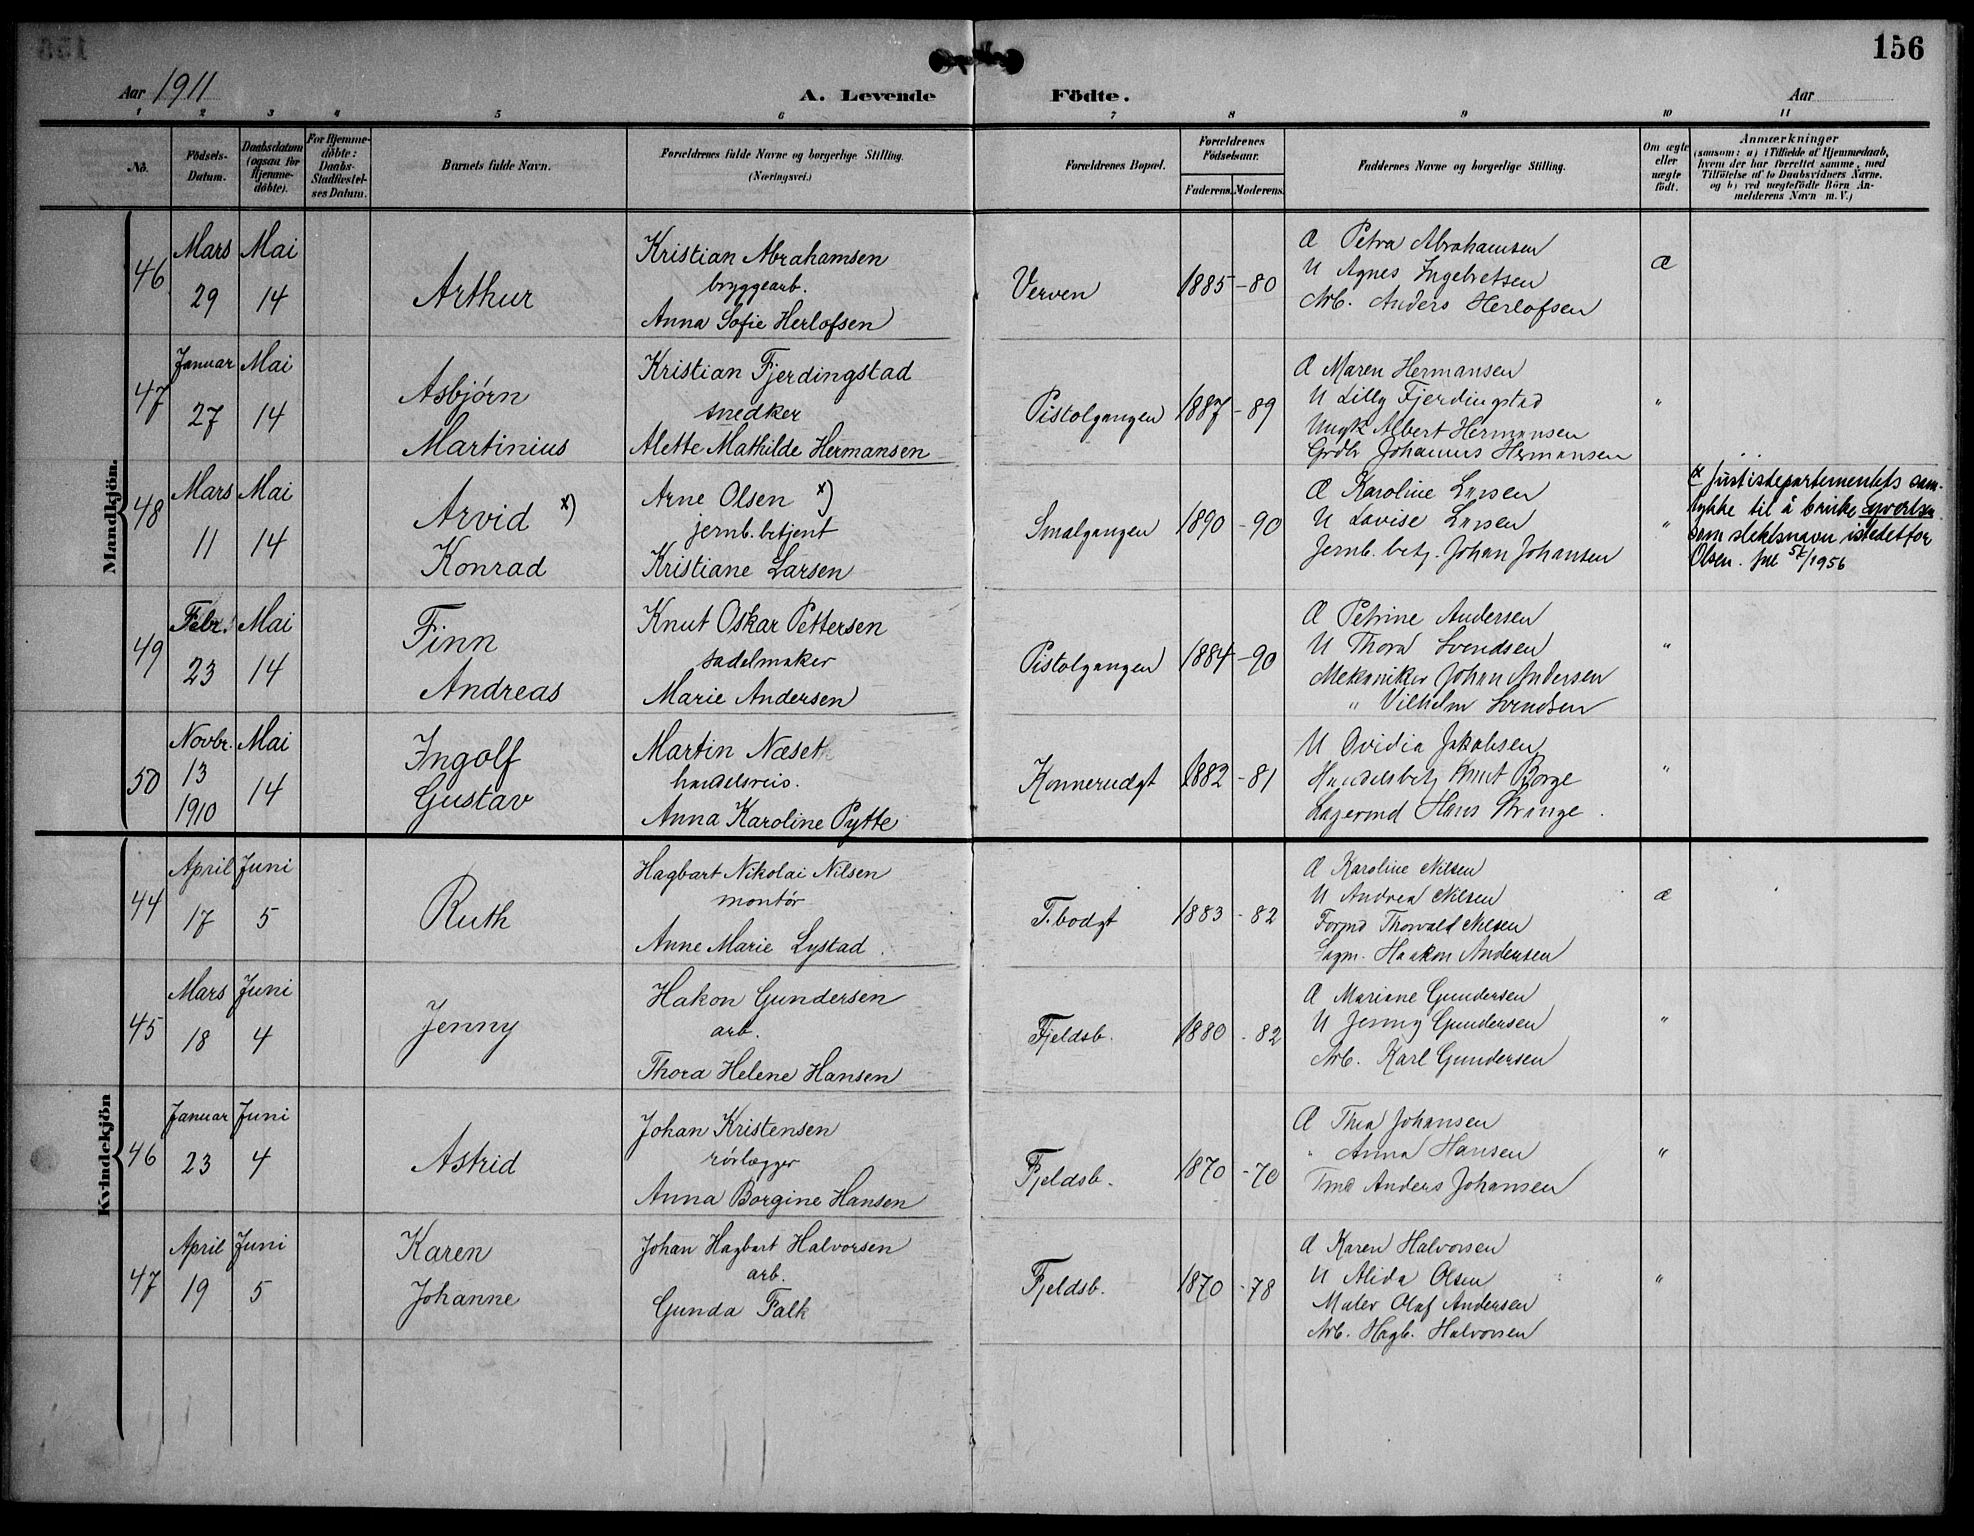 156
Aar 1911
A. Levende Födte.
Aar
1 2 3 4 5 6 7 8 9 10 11
No.
Födsels-Datum.
Daabsdatum (ogsaa for Hjemmedöbte).
For Hjemmedöbte: Daabs-Stadfæstelses Datum.
Barnets fulde Navn.
Forældrenes fulde Navne og borgerlige Stilling.
(Næringsvei.)
Forældrenes Bopæl.
Forældrenes Födselsaar.
Faderens. Moderens.
Faddernes Navne og borgerlige Stilling.
Om ægte eller uægte födt.
Anmærkninger
(saasom: a) i Tilfælde af Hjemmedaab, hvem der har forrettet samme, med Tilföielse af to Daabsvidners Navne, og b) ved uægtefödte Börn Anmelderens Navn m. V.)
Mandkjön.
46
Mars 29
Mai 14
Arthur
Kristian Abrahamsen
bryggearb.
Anna Sofie Herlofsen
Verven
1885 - 80
Æ Petra Abrahamsen
U Agnes Ingebretsen
Arb. Anders Herlofsen
Æ
47
Januar 27
Mai 14
Asbjørn
Martinius
Kristian Fjerdingstad
snedker
Alette Mathilde Hermansen
Pistolgangen
1887 - 89
Æ Maren Hermansen
U Lilly Fjerdingstad
Ungk Albert Hermansen
Grdbr Johannes Hermansen
"
48
Mars 11
Mai 14
Arvid x)
Konrad
Arne Olsen x)
jernb. betjent
Kristiane Larsen
Smalgangen
1890 - 90
Æ Karoline Larsen
U Lovise Larsen
Jernb. betj. Johan Johansen
"
x Justisdepartementets sam-
tykke til å bruke
som slektsnavn istedetfor
Olsen. 1956
49
Febr. 23
Mai 14
Finn
Andreas
Knut Oskar Pettersen
sadelmaker
Marie Andersen
Pistolgangen
1884 - 90
Æ Petrine Andersen
U Thora Svendsen
Mekaniker Johan Andersen
" Vilhelm Svendsen
"
50
Novbr. 13 1910
Mai 14
Ingolf
Gustav
Martin Næseth
handelsreis.
Anna Karoline Pytte
Konnerudgt
1882 - 81
U Ovidia Jakobsen
Handelsbetj Knut Borge
Lagermd Hans Strange
"
Kvindekjön
44
April 17
Juni 5
Ruth
Hagbart Nikolai Nilsen
montør
Anne Marie Lystad
T. bodgt
1883 - 82
Æ Karoline Nilsen
U Andrea Nilsen
Formd Thorvald Nilsen
Lagm. Haakon Andersen
Æ
45
Mars 18
Juni 4
Jenny
Hakon Gundersen
arb.
Thora Helene Hansen
Fjeldsb.
1880 - 82
Æ Mariane Gundersen
U Jenny Gundersen
Arb. Karl Gundersen
"
46
Januar 23
Juni 4
Astrid
Johan Kristensen
rørlægger
Anna Borgine Hansen
Fjeldsb.
1870 - 70
Æ Thea Johansen
" Anna Hansen
Tmd Anders Johansen
"
47
April 19
Juni 5
Karen
Johanne
Johan Hagbart Halvorsen
arb.
Gunda Falk
Fjeldsb.
1870 - 78
Æ Karen Halvorsen
U Alida Olsen
Maler Olaf Andersen
Arb. Hagb. Halvorsen
"